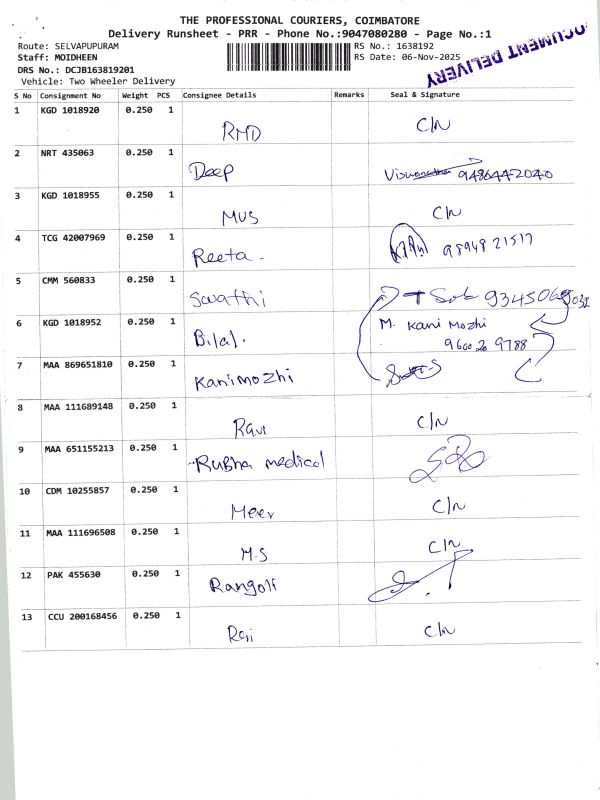 THE PROFESSIONAL COURIERS, COIMBATORE
Delivery Runsheet - PRR - Phone No.:9047080280 - Page No.:1
Route: SELVAPUPURAM RS No.: 1638192
Staff: MOIDHEEN RS Date: 06-Nov-2025
DRS No.: DCJB163819201
Vehicle: Two Wheeler Delivery
OCUMENT DELIVERY
S No Consignment No Weight PCS Consignee Details Remarks Seal & Signature
1 KGD 1018920 0.250 1 RMD C/N
2 NRT 435063 0.250 1 Deep 9486442040
3 KGD 1018955 0.250 1 MUS C/N
4 TCG 42007969 0.250 1 Reeta 9894821517
5 CMM 560833 0.250 1 Swathi
6 KGD 1018952 0.250 1 Bilal. M. Kani Mozhi
7 MAA 869651810 0.250 1 Kanimozhi
8 MAA 111689148 0.250 1 Ravi C/N
9 MAA 651155213 0.250 1 Rubha medical
10 CDM 10255857 0.250 1 Meer C/N
11 MAA 111696508 0.250 1 M.S C/N
12 PAK 455630 0.250 1 Rangoli
13 CCU 200168456 0.250 1 Raji C/N